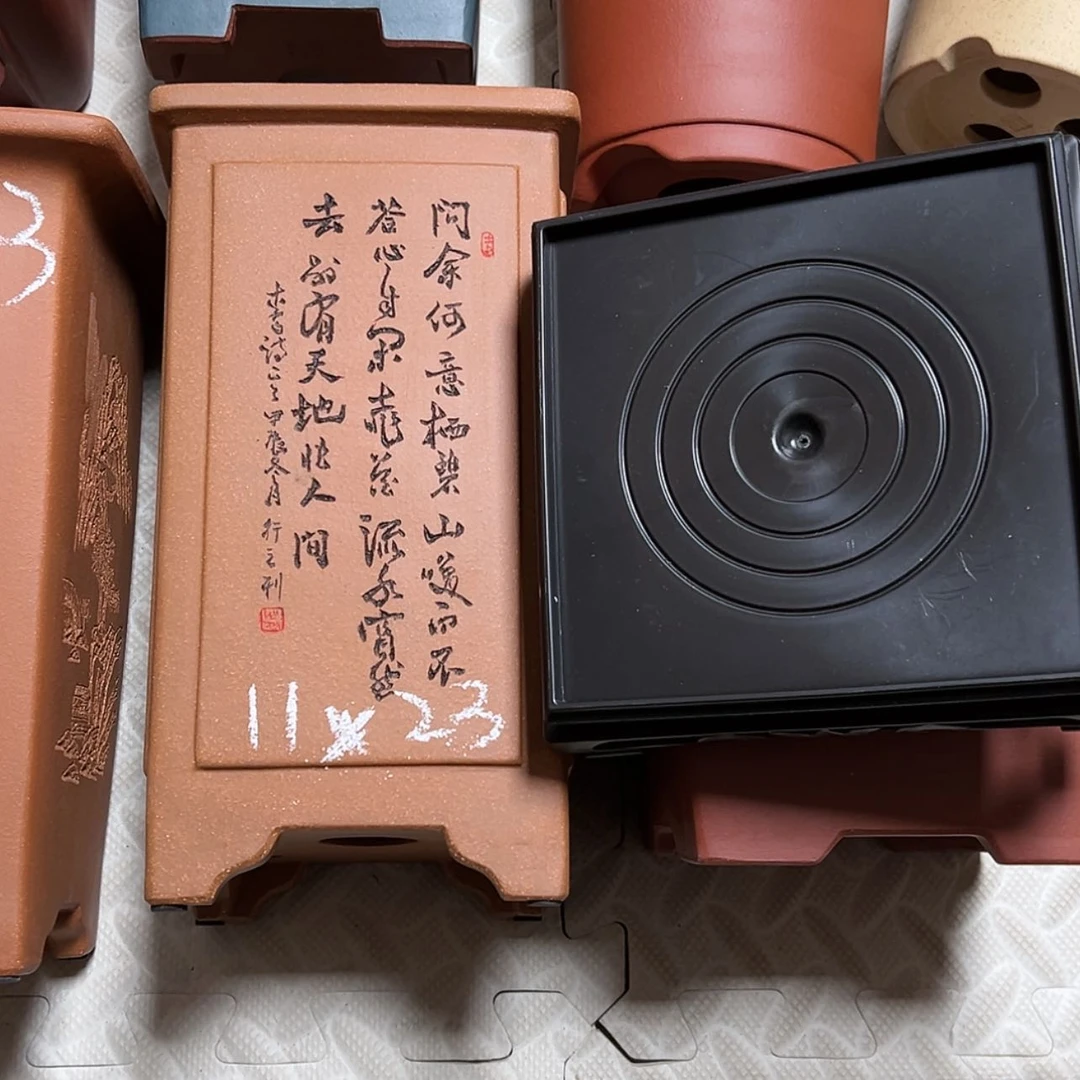 问余何意栖碧山笑而不
答心自闲桃花流水窅然
去别有天地非人间
李白诗甲辰冬月行之刊
11x23
3